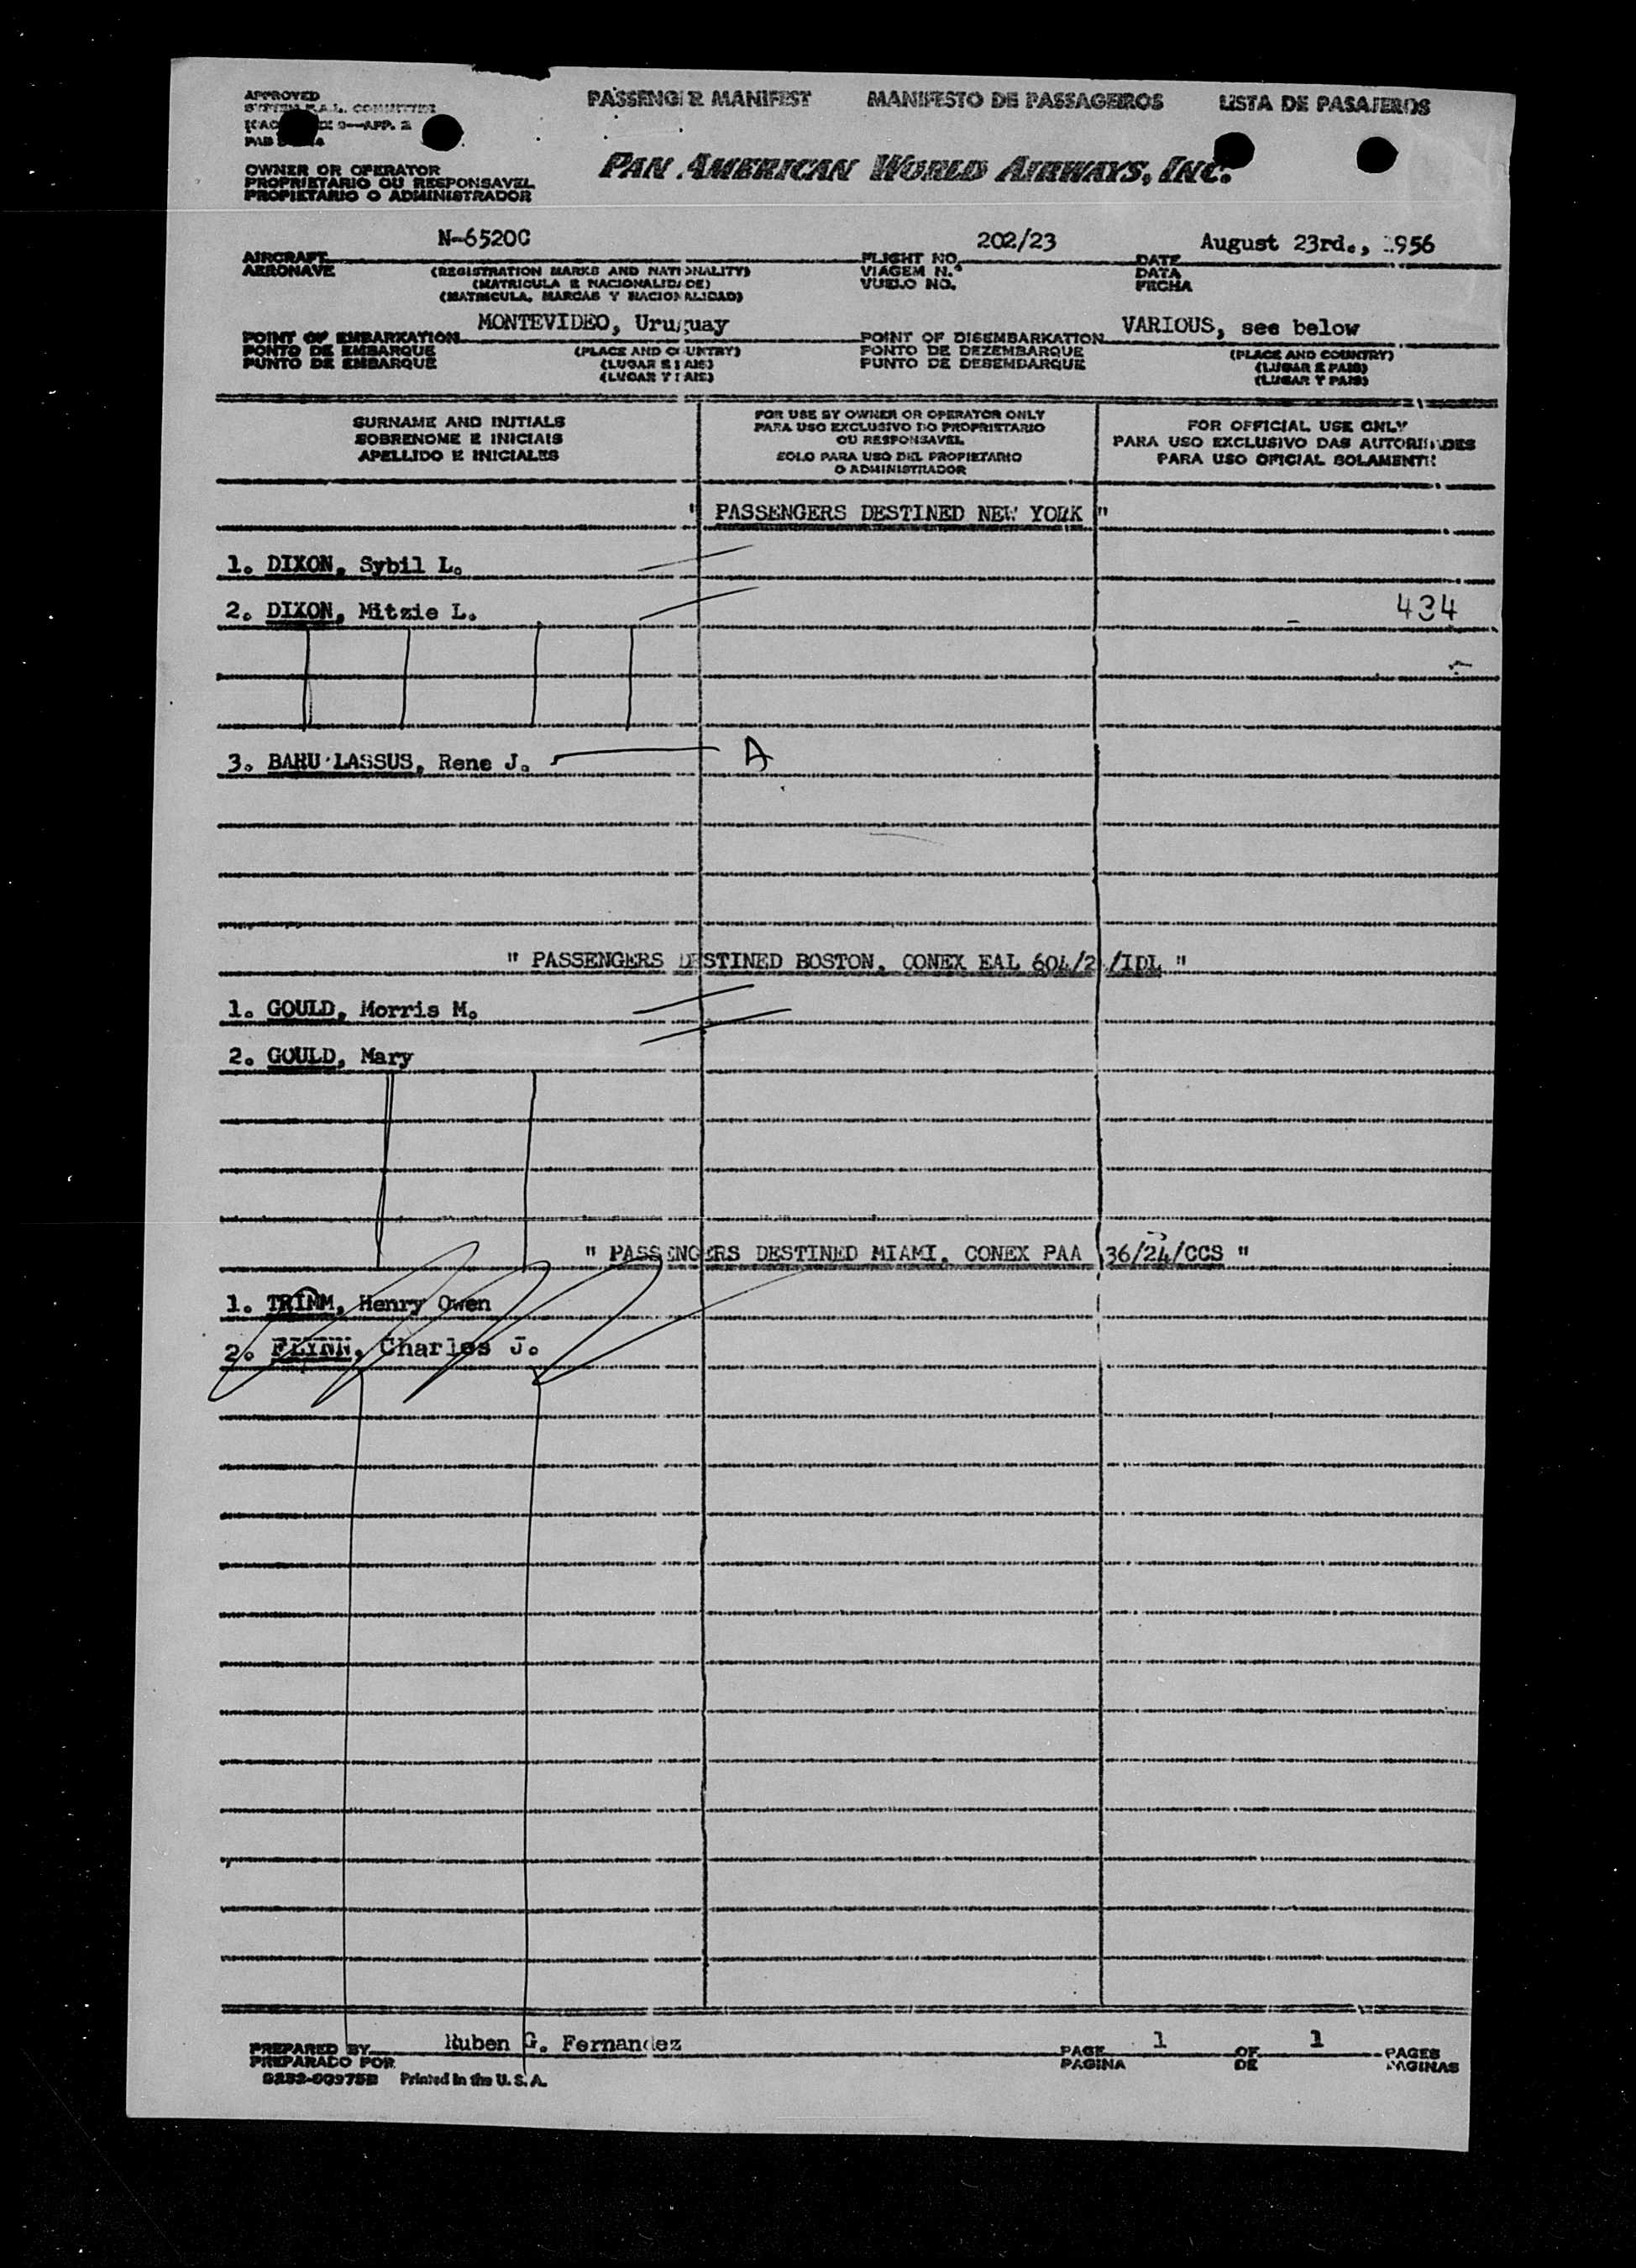 APPROVED
SYSTEM F.A.L. COMMITTEE
9—APP. 2
PASSENGER MANIFEST MANIFESTO DE PASSAGEIROS LISTA DE PASAJEROS
OWNER OR OPERATOR
PROPRIETARIO OU RESPONSAVEL
PROPIETARIO O ADMINISTRADOR
PAN AMERICAN WORLD AIRWAYS, INC.
N-6520C 202/23 August 23rd., 1956
AIRCRAFT FLIGHT NO. DATE
AERONAVE (REGISTRATION MARKS AND NATIONALITY) VIAGEM N.º DATA
(MATRICULA E NACIONALIDADE) VUELO NO. FECHA
(MATRICULA, MARCAS Y NACIONALIDAD)
MONTEVIDEO, Uruguay VARIOUS, see below
POINT OF EMBARKATION POINT OF DISEMBARKATION
PONTO DE EMBARQUE (PLACE AND COUNTRY) PONTO DE DEZEMBARQUE (PLACE AND COUNTRY)
PUNTO DE EMBARQUE (LUGAR E PAIS) PUNTO DE DESEMBARQUE (LUGAR E PAIS)
(LUGAR Y PAIS) (LUGAR Y PAIS)
SURNAME AND INITIALS
SOBRENOME E INICIAIS
APELLIDO E INICIALES
FOR USE BY OWNER OR OPERATOR ONLY
PARA USO EXCLUSIVO DO PROPRIETARIO
OU RESPONSAVEL
SOLO PARA USO DEL PROPIETARIO
O ADMINISTRADOR
FOR OFFICIAL USE ONLY
PARA USO EXCLUSIVO DAS AUTORIDADES
PARA USO OFICIAL SOLAMENTE
" PASSENGERS DESTINED NEW YORK "
1. DIXON, Sybil L.
2. DIXON, Mitzie L. 434
3. BARU LASSUS, Rene J. A
" PASSENGERS DESTINED BOSTON. CONEX EAL 604/2 /IDL "
1. GOULD, Morris M.
2. GOULD, Mary
" PASSENGERS DESTINED MIAMI. CONEX PAA 36/24/CCS "
1. TRIMM, Henry Owen
2. FLYNN, Charles J.
PREPARED BY Ruben G. Fernandez PAGE 1 OF 1 PAGES
PREPARADO POR PAGINA DE PAGINAS
Printed in the U. S. A.